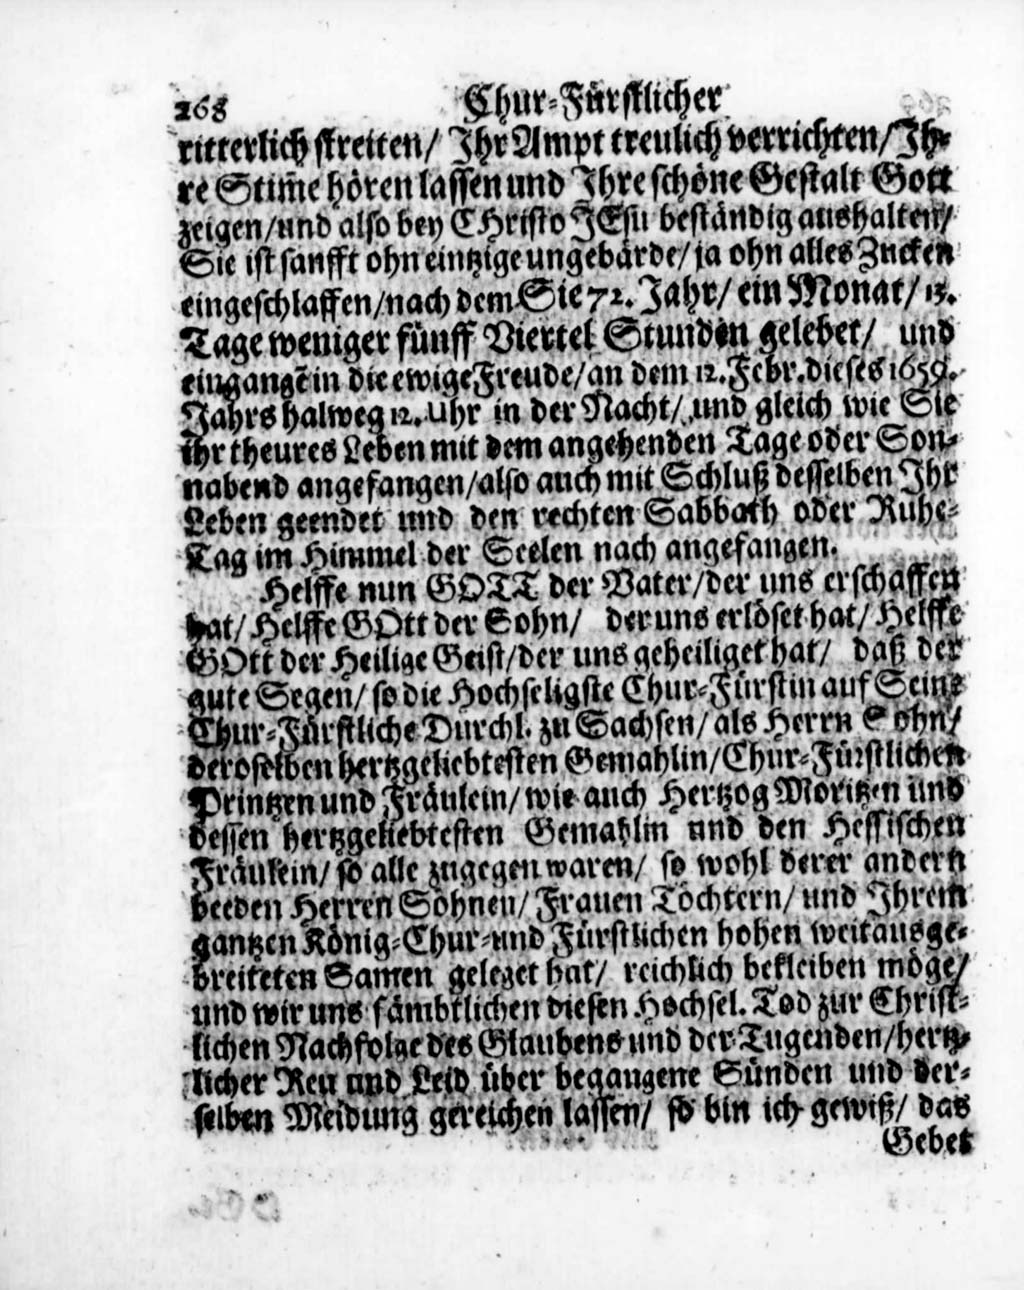 268 Chur-Fürstlicher
ritterlich streiten/ Ihr Ampt treulich verrichten/ Ih-
re Stim̃e hören lassen und Ihre schöne Gestalt Gott
zeigen/ und also bey CHristo JEsu beständig aushalten/
Sie ist sanfft ohn eintzige ungebärde/ ja ohn alles Zucken
eingeschlaffen/ nach dem Sie 72. Jahr/ ein Monat/ 13.
Tage weniger fünff Viertel Stunden gelebet/ und
eingangẽ in die ewige Freude/ an dem 12. Febr. dieses 1659.
Jahrs halweg 12. Uhr in der Nacht/ und gleich wie Sie
ihr theures Leben mit dem angehenden Tage oder Son-
nabend angefangen/ also auch mit Schluß desselben Ihr
Leben geendet und den rechten Sabbath oder Ruhe-
Tag im Himmel der Seelen nach angefangen.
Helffe nun GOTT der Vater/ der uns erschaffen
hat/ Helffe GOtt der Sohn/ der uns erlöset hat/ Helffe
GOtt der Heilige Geist/ der uns geheiliget hat/ daß der
gute Segen/ so die Hochseligste Chur-Fürstin auf Seine
Chur-Fürstliche Durchl. zu Sachsen/ als Herrn Sohn/
deroselben hertzgeliebtesten Gemahlin/ Chur-Fürstlichen
Printzen und Fräulein/ wie auch Hertzog Moritzen und
dessen hertzgeliebtesten Gemahlin und den Hessischen
Fräulein/ so alle zugegen waren/ so wohl derer andern
beeden Herren Söhnen/ Frauen Töchtern/ und Ihrem
gantzen König-Chur-und Fürstlichen hohen weitausge-
breiteten Samen geleget hat/ reichlich bekleiben möge/
und wir uns sämbtlichen diesen Hochsel. Tod zur Christ-
lichen Nachfolge des Glaubens und der Tugenden/ hertz-
licher Reu und Leid über begangene Sünden und der-
selben Meidung gereichen lassen/ so bin ich gewiß/ das
Gebet